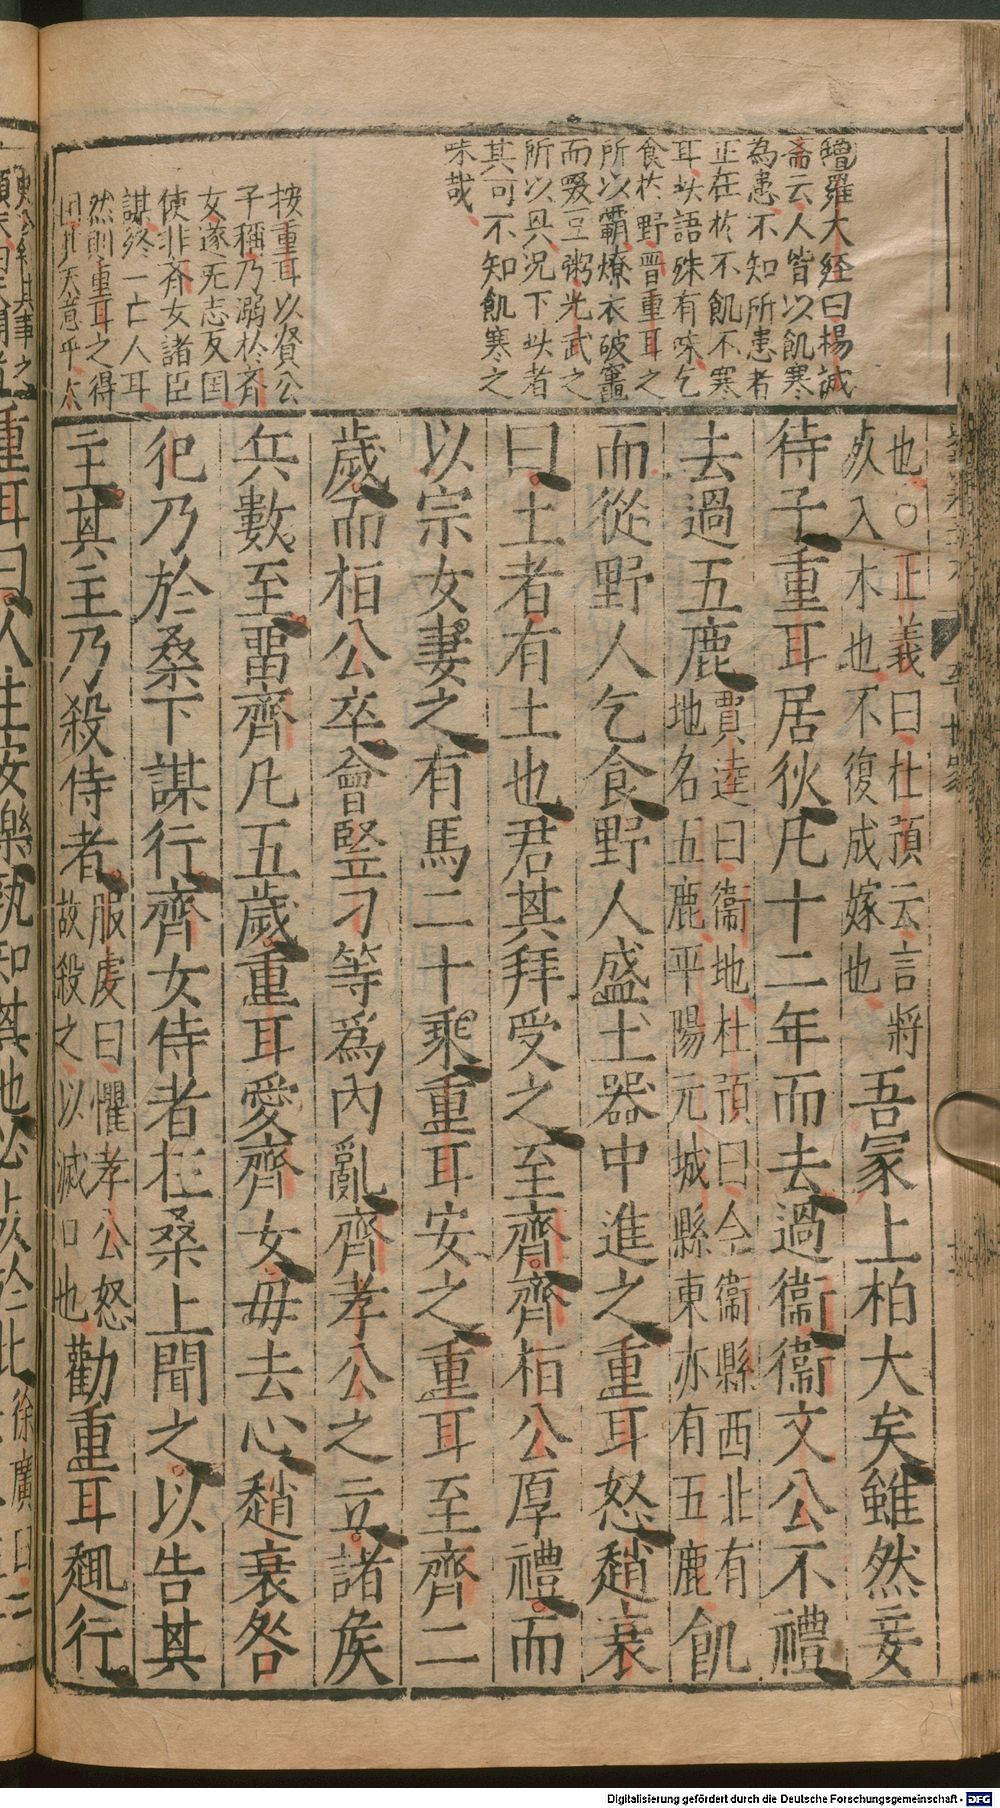 鶴羅大経曰楊誠
斎云人皆以飢寒
為患不知所患者
正在於不飢不寒
耳此語殊有味乞
食於野晋重耳之
所以霸燎衣破竈
而啜豆粥光武之
所以興況下此者
其可不知飢寒之
味哉
按重耳以資公
子稱乃溺於斉
女遂无志反国
使非斉女諸臣
謀終一亡人耳
然則重耳之得
国其天意乎
也○正義曰杜預云言將
死入木也不復成嫁也
吾冢上柏大矣雖然妾
待子重耳居狄凡十二年而去過衞衞文公不禮
去過五鹿
賈逵曰衞地杜預曰今衞縣西北有
地名五鹿平陽元城縣東亦有五鹿
飢
而從野人乞食野人盛土器中進之重耳怒趙衰
曰土者有土也君其拜受之至齊齊桓公厚禮而
以宗女妻之有馬二十乘重耳安之重耳至齊二
歲而桓公卒會竪刁等爲內亂齊孝公之立諸矦
兵數至畱齊凡五歲重耳愛齊女毋去心趙衰咎
犯乃於桑下謀行齊女侍者在桑上聞之以告其
主其主乃殺侍者
服虔曰懼孝公怒
故殺之以滅口也
勸重耳趣行
重耳曰人生安樂孰知其他必死於此
徐廣曰
Digitalisierung gefördert durch die Deutsche Forschungsgemeinschaft - DFG